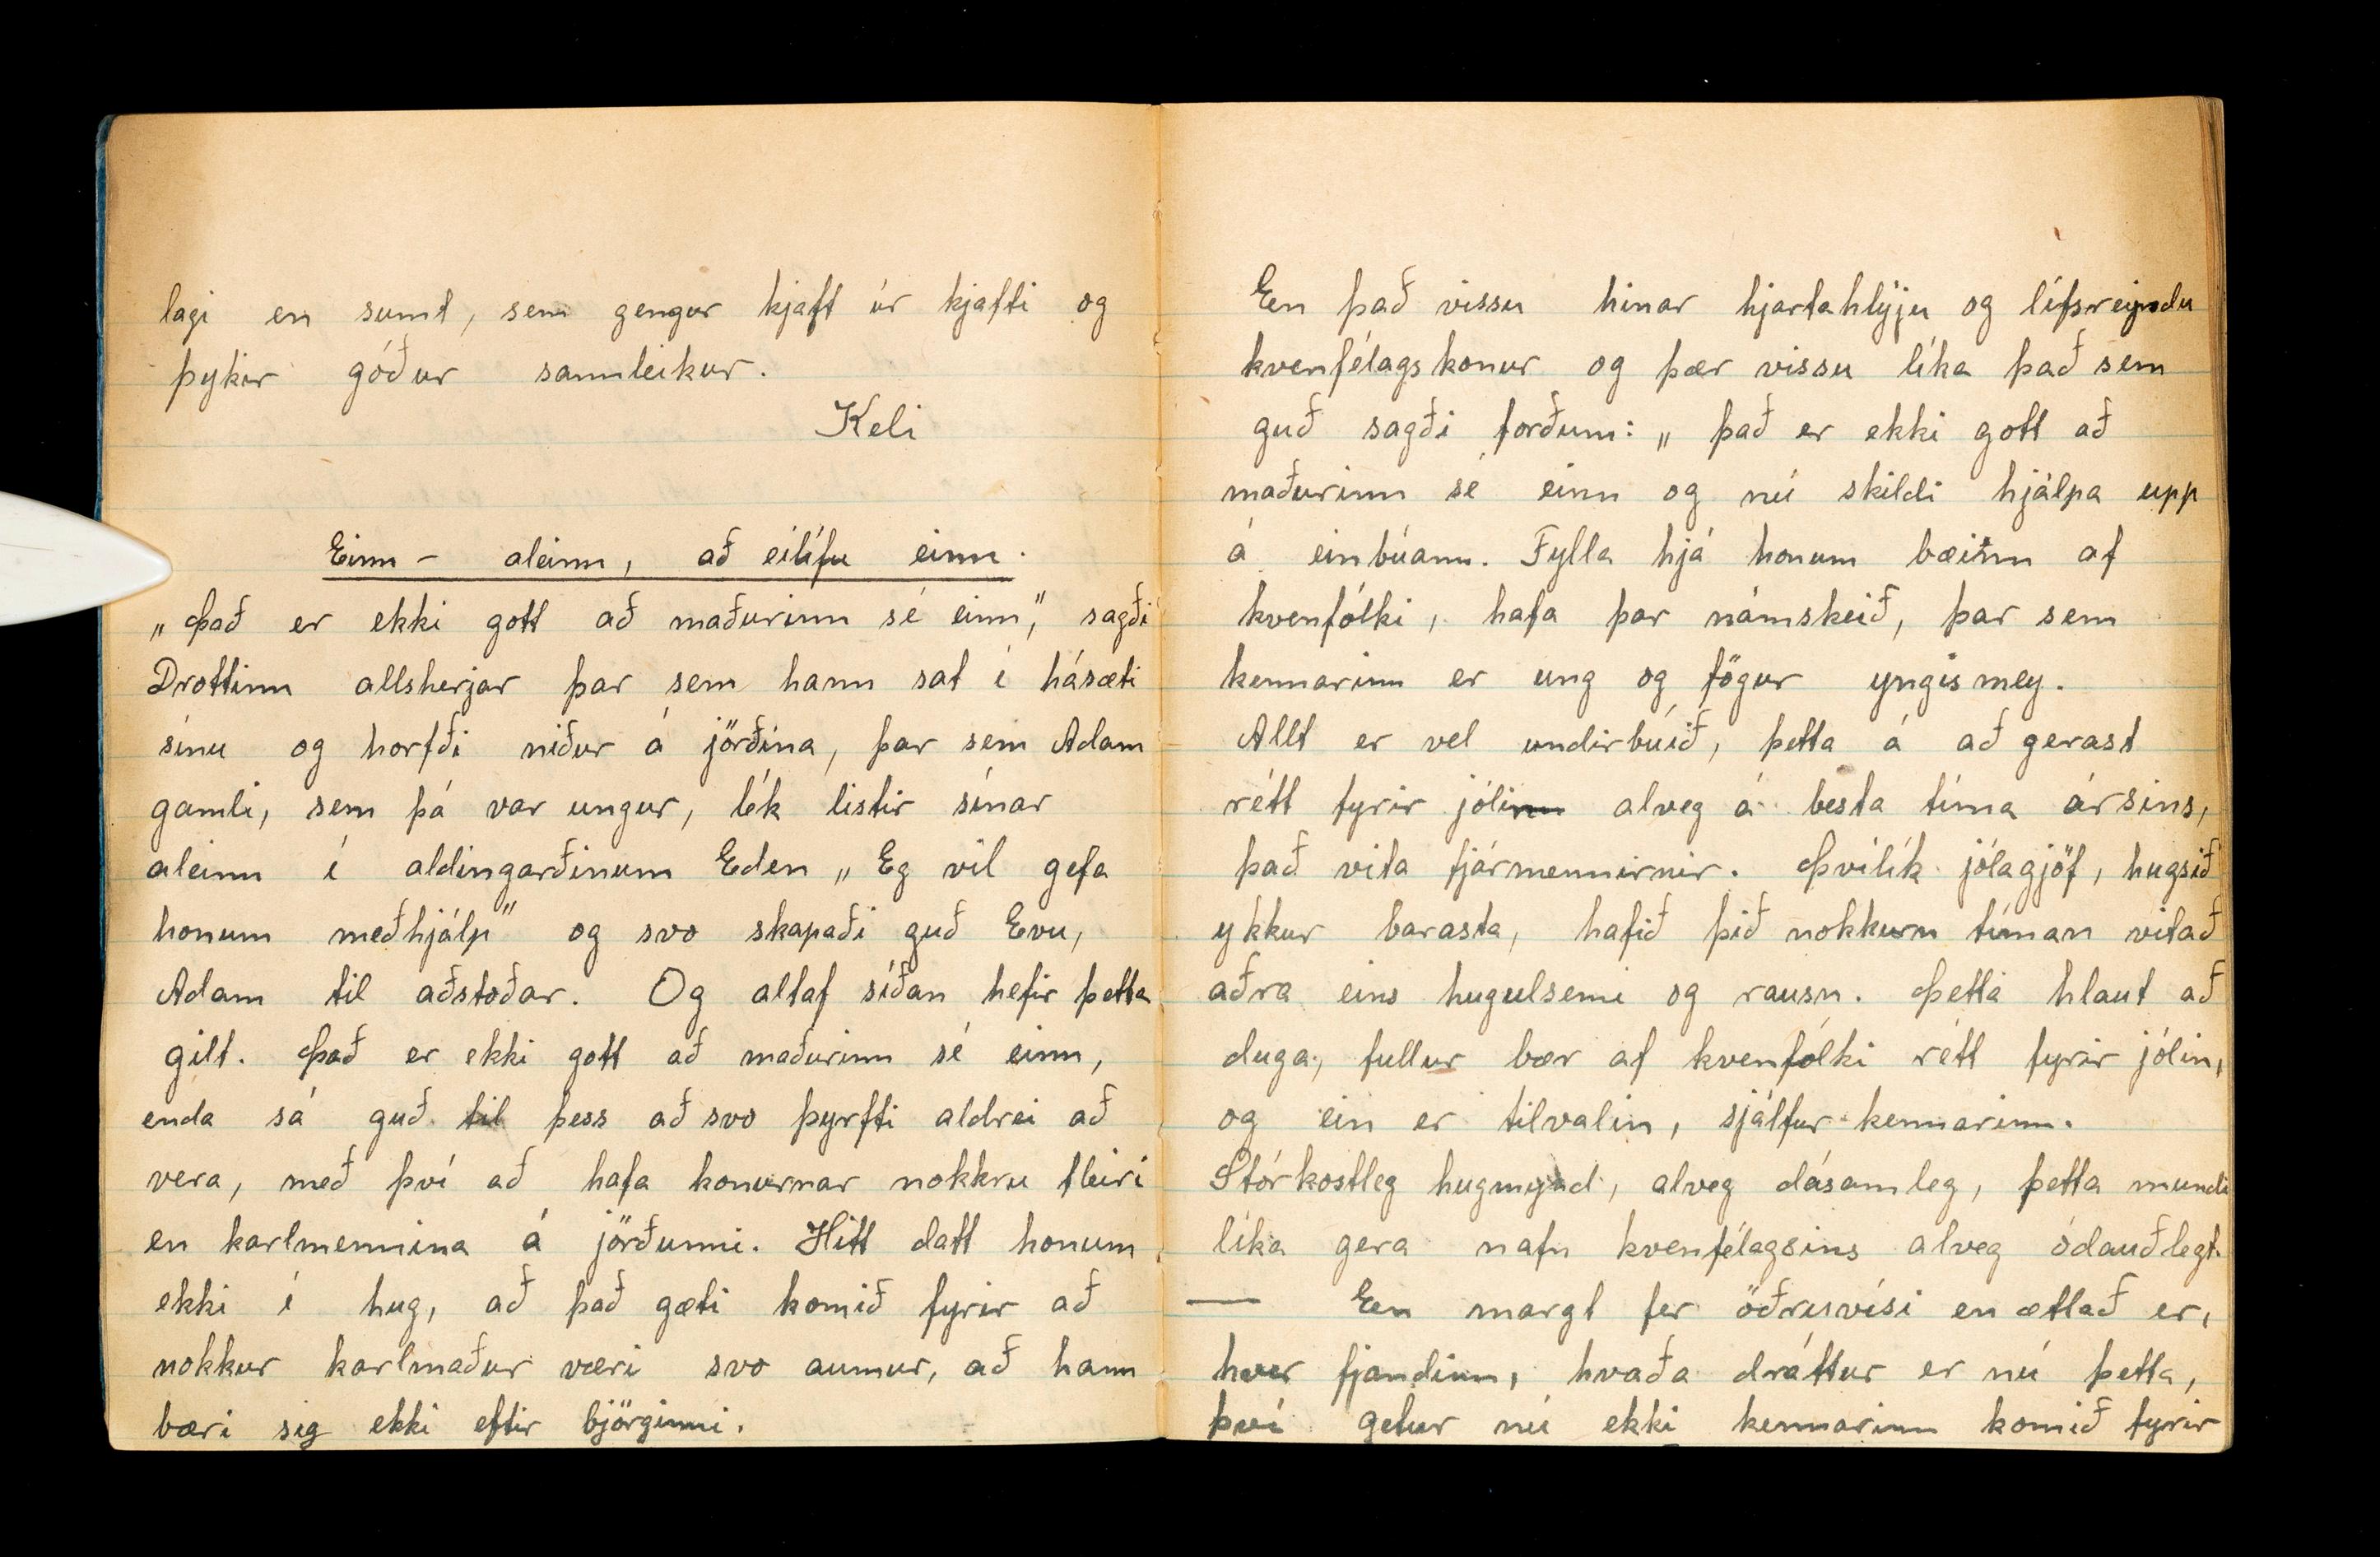 lagi en sumt, sem gengur kjaft úr kjafti og
þykir góður sannleikur.
Keli
Einn - aleinn, að eilífu einn.
„Það er ekki gott að maðurinn sé einn," sagði
Drottinn allsherjar þar sem hann sat í hásæti
sínu og horfði niður á jörðina, þar sem Adam
gamli, sem þá var ungur, lék listir sínar
aleinn í aldingarðinum Eden „Eg vil gefa
honum meðhjálp" og svo skapaði guð Evu,
Adam til aðstoðar. Og altaf síðan hefir þetta
gilt. Það er ekki gott að maðurinn sé einn,
enda sá guð til þess að svo þyrfti aldrei að
vera, með því að hafa konurnar nokkru fleiri
en karlmennina á jörðunni. Hitt datt honum
ekki í hug, að það gæti komið fyrir að
nokkur karlmaður væri svo aumur, að hann
bæri sig ekki eftir björginni.
En það vissu hinar hjartahlýju og lífsreyndu
kvenfélagskonur og þær vissu líka það sem
guð sagði forðum: „það er ekki gott að
maðurinn sé einn og nú skildi hjálpa upp
á einbúann. Fylla hjá honum bæinn af
kvenfólki, hafa þar námskeið, þar sem
kennarinn er ung og fögur yngismey.
Allt er vel undirbúið, þetta á að gerast
rétt fyrir jólinn alveg á besta tíma ársins,
það vita fjármennirnir. Þvílík jólagjöf, hugsið
ykkur barasta, hafið þið nokkurn tíman vitað
aðra eins hugulsemi og rausn. Þetta hlaut að
duga, fullur bær af kvenfólki rétt fyrir jólin,
og ein er tilvalin, sjálfur kennarinn.
Stórkostleg hugmynd, alveg dásamleg, þetta mundi
líka gera nafn kvenfélagsins alveg ódauðlegt.
— En margt fer öðruvísi en ætlað er,
hver fjandinn, hvaða dráttur er nú þetta,
því getur nú ekki kennarinn komið fyrir